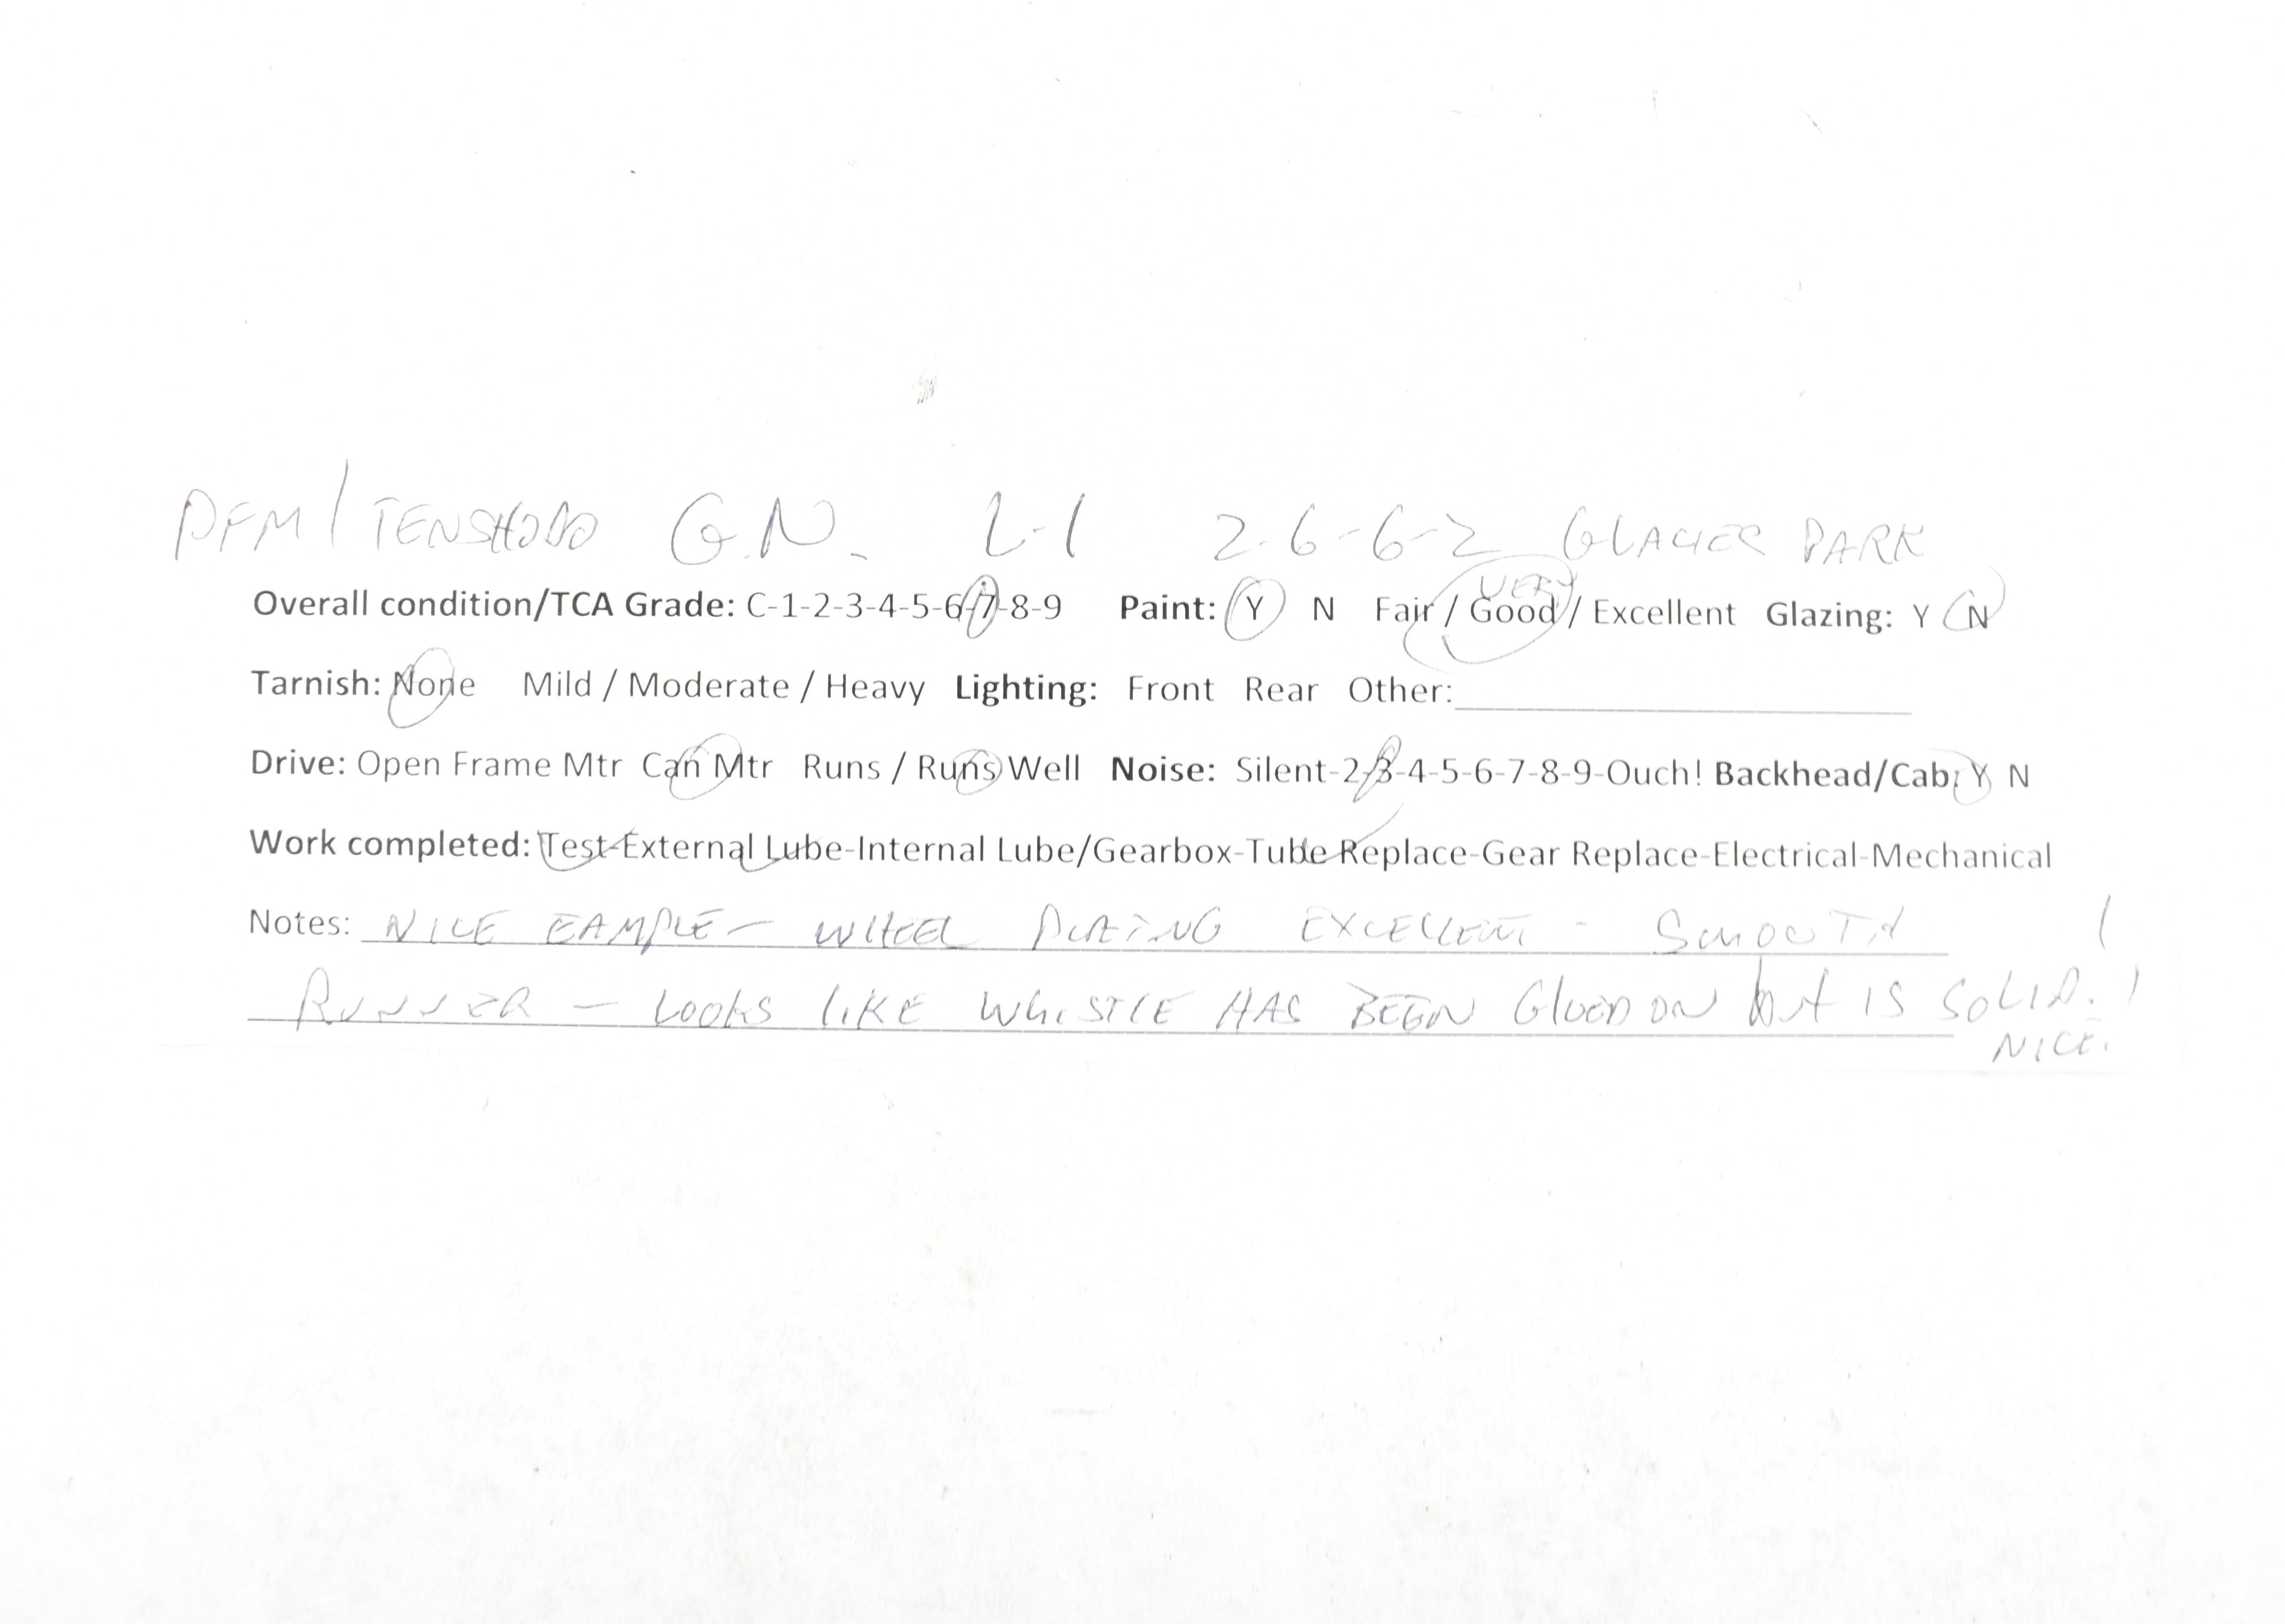 PFM / TENSHODO G.N. L-1 2-6-6-2 GLACIER PARK
VERY
Overall condition/TCA Grade: C-1-2-3-4-5-6-7-8-9 Paint: Y N Fair / Good / Excellent Glazing: Y N
Tarnish: None Mild / Moderate / Heavy Lighting: Front Rear Other:
Drive: Open Frame Mtr Can Mtr Runs / Runs Well Noise: Silent-2-3-4-5-6-7-8-9-Ouch! Backhead/Cab: Y N
Work completed: Test-External Lube-Internal Lube/Gearbox-Tube Replace-Gear Replace-Electrical-Mechanical
Notes: NICE EAMPLE - WHEEL PLATING EXCELLENT - SMOOTH
RUNNER - LOOKS LIKE WHISTLE HAS BEEN GLUED ON but IS SOLID.!
NICE.